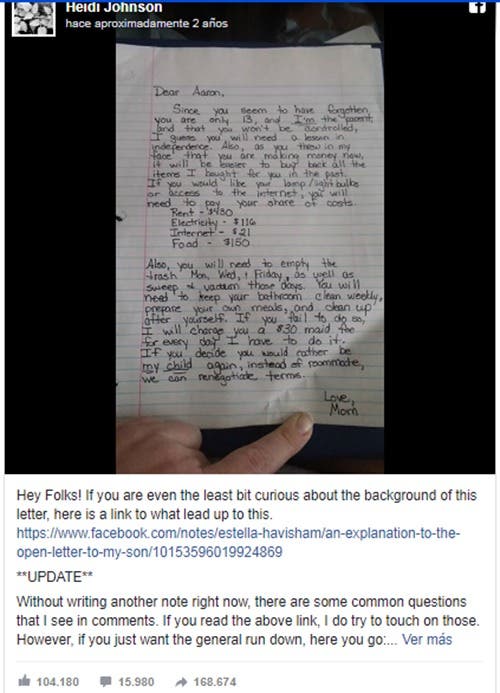 Heidi Johnson
hace aproximadamente 2 años
Dear Aaron,
Since you seem to have forgotten
you are only 13, and I'm the parent,
and that you won't be controlled,
I guess you will need a lesson in
independence. Also, as you threw in my
face that you are making money now,
it will be easier to buy back all the
items I bought for you in the past.
If you would like your lamp/light bulbs
or access to the internet, you will
need to pay your share of costs.
Rent - $430
Electricity - $116
Internet - $21
Food - $150
Also, you will need to empty the
trash Mon, Wed, & Friday, as well as
sweep & vacuum those days. You will
need to keep your bathroom clean weekly,
prepare your own meals, and clean up
after yourself. If you fail to do so,
I will charge you a $30 maid fee
for every day I have to do it.
If you decide you would rather be
my child again, instead of roommate,
we can renegotiate terms.
Love,
Mom
Hey Folks! If you are even the least bit curious about the background of this
letter, here is a link to what lead up to this.
https://www.facebook.com/notes/estella-havisham/an-explanation-to-the-
open-letter-to-my-son/10153596019924869
**UPDATE**
Without writing another note right now, there are some common questions
that I see in comments. If you read the above link, I do try to touch on those.
However, if you just want the general run down, here you go:... Ver más
104.180 15.980 168.674